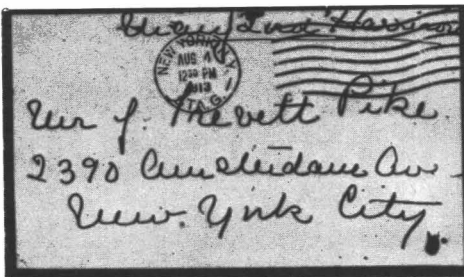 NEW YORK, N.Y.
AUG 4
12 30 PM
1913
STA. G
Mr J. Trevett Pike.
2390 Amsterdam Av.
New. York City.